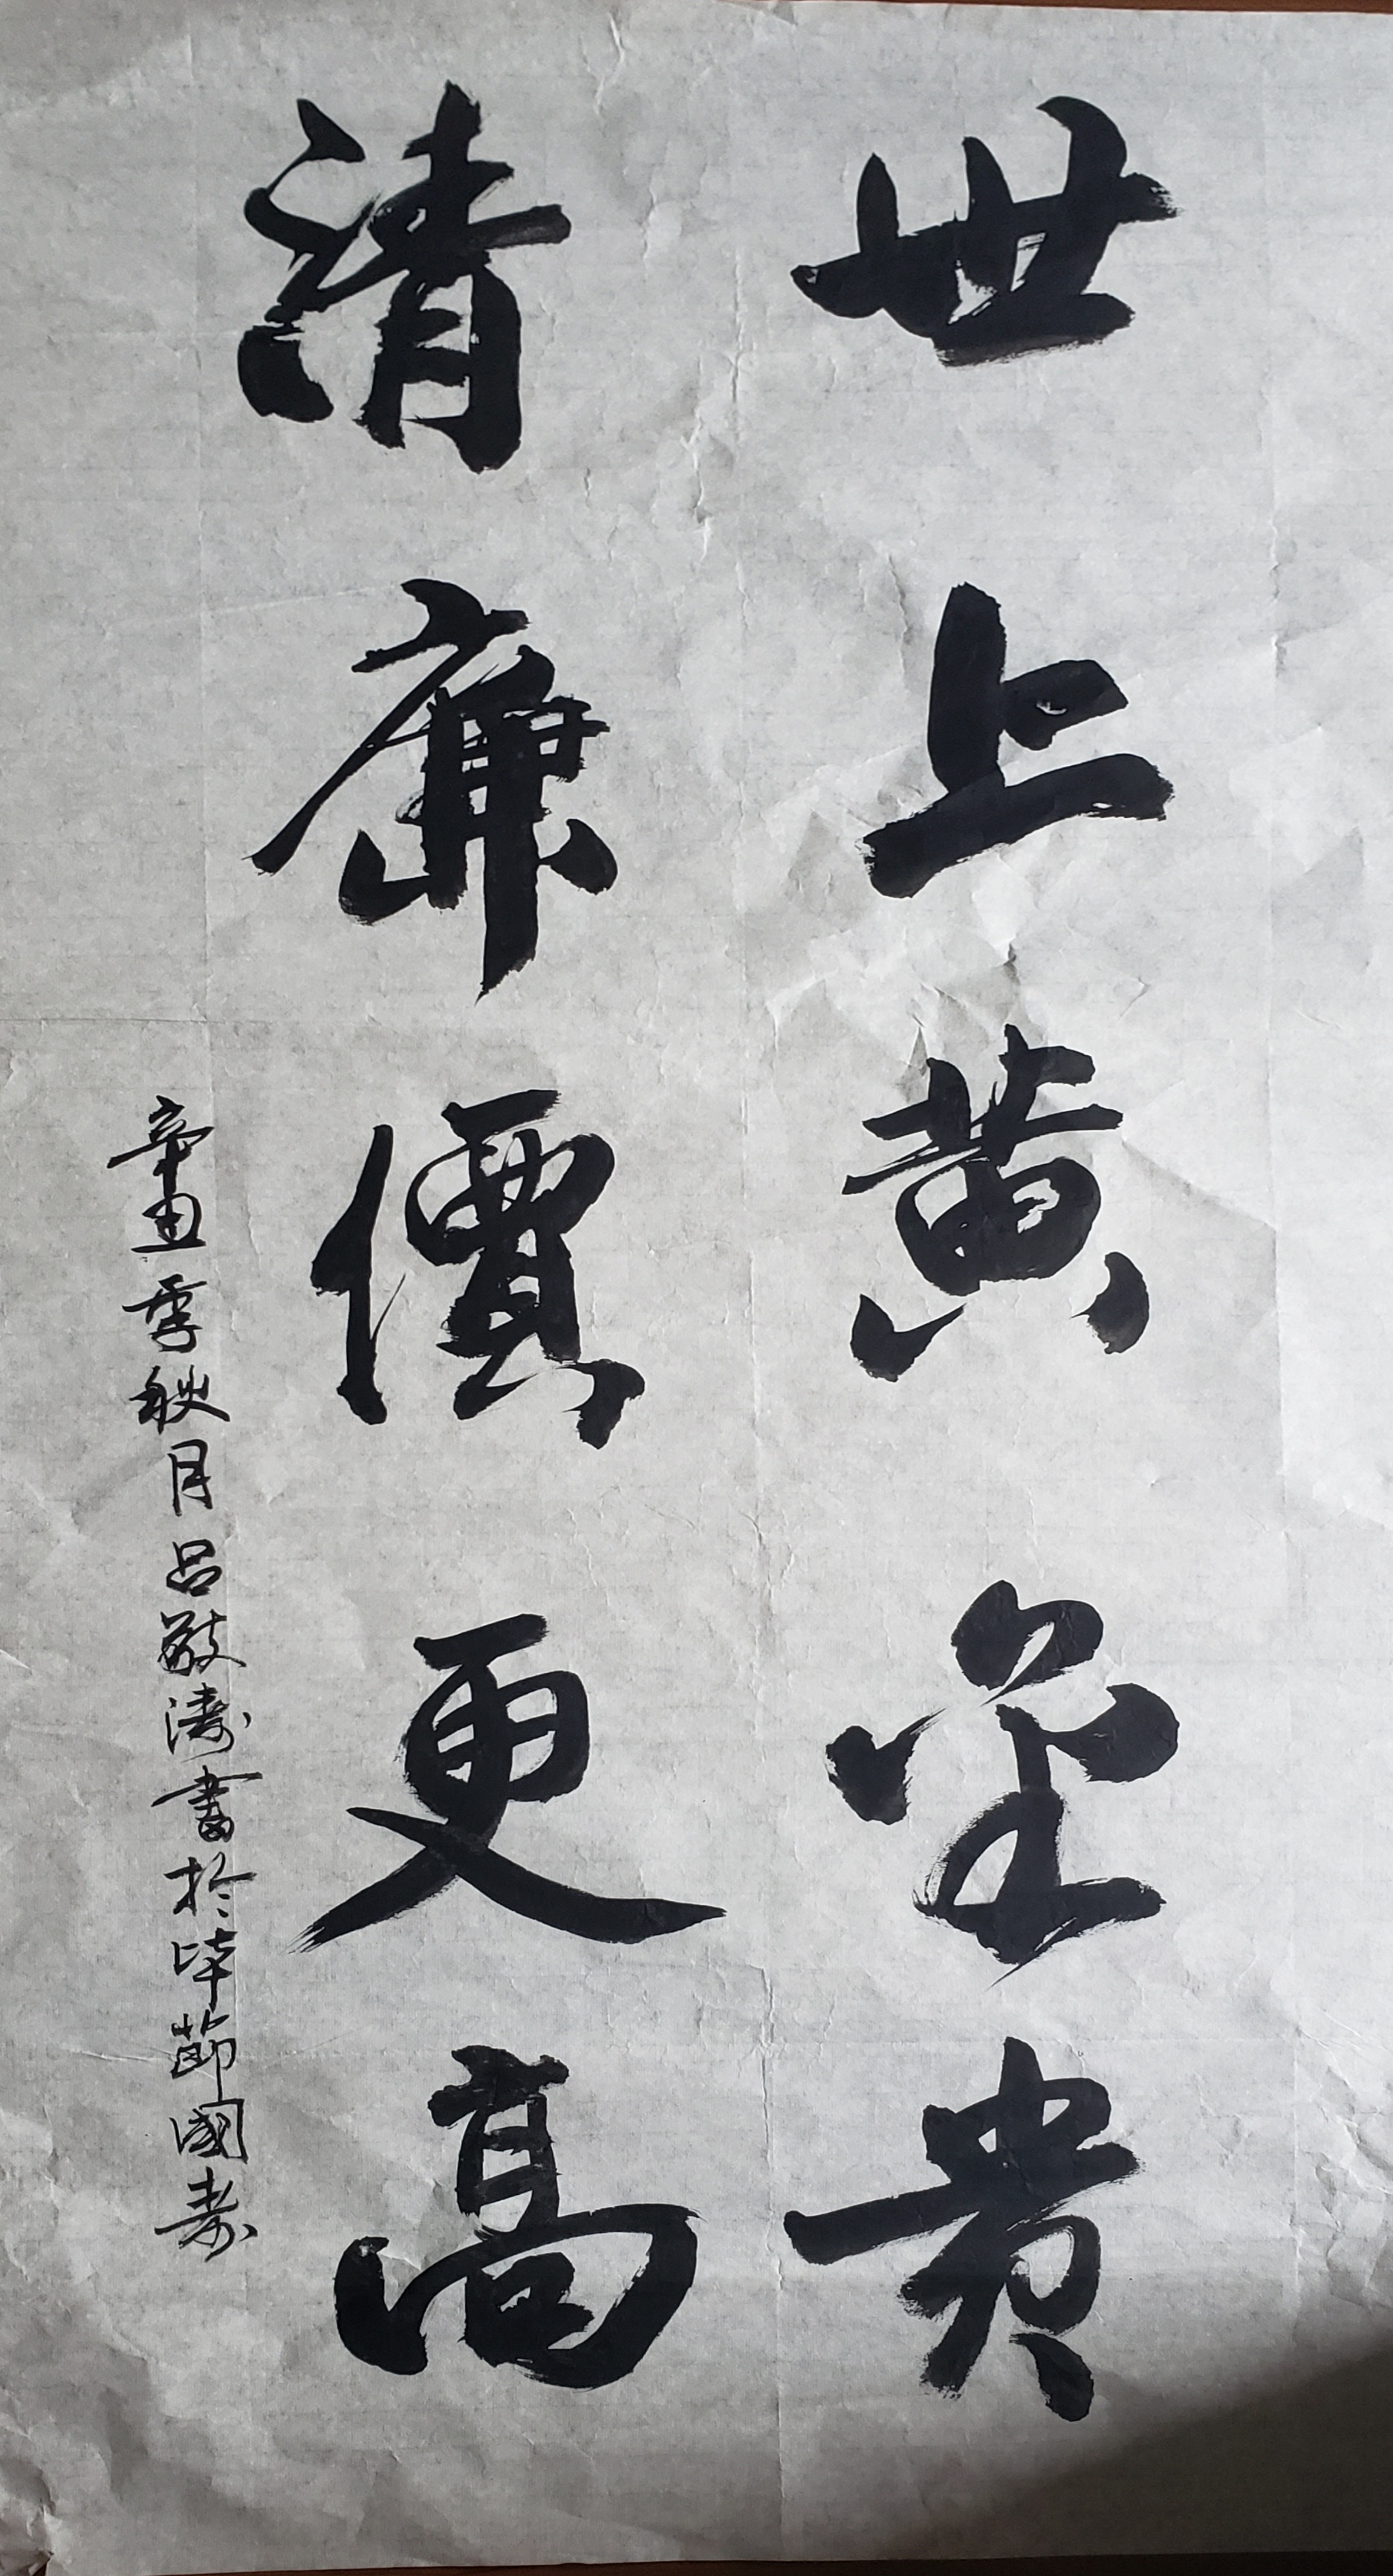 世上黄金贵
清廉價更高
辛丑季秋月吕敬涛書於毕節國泰